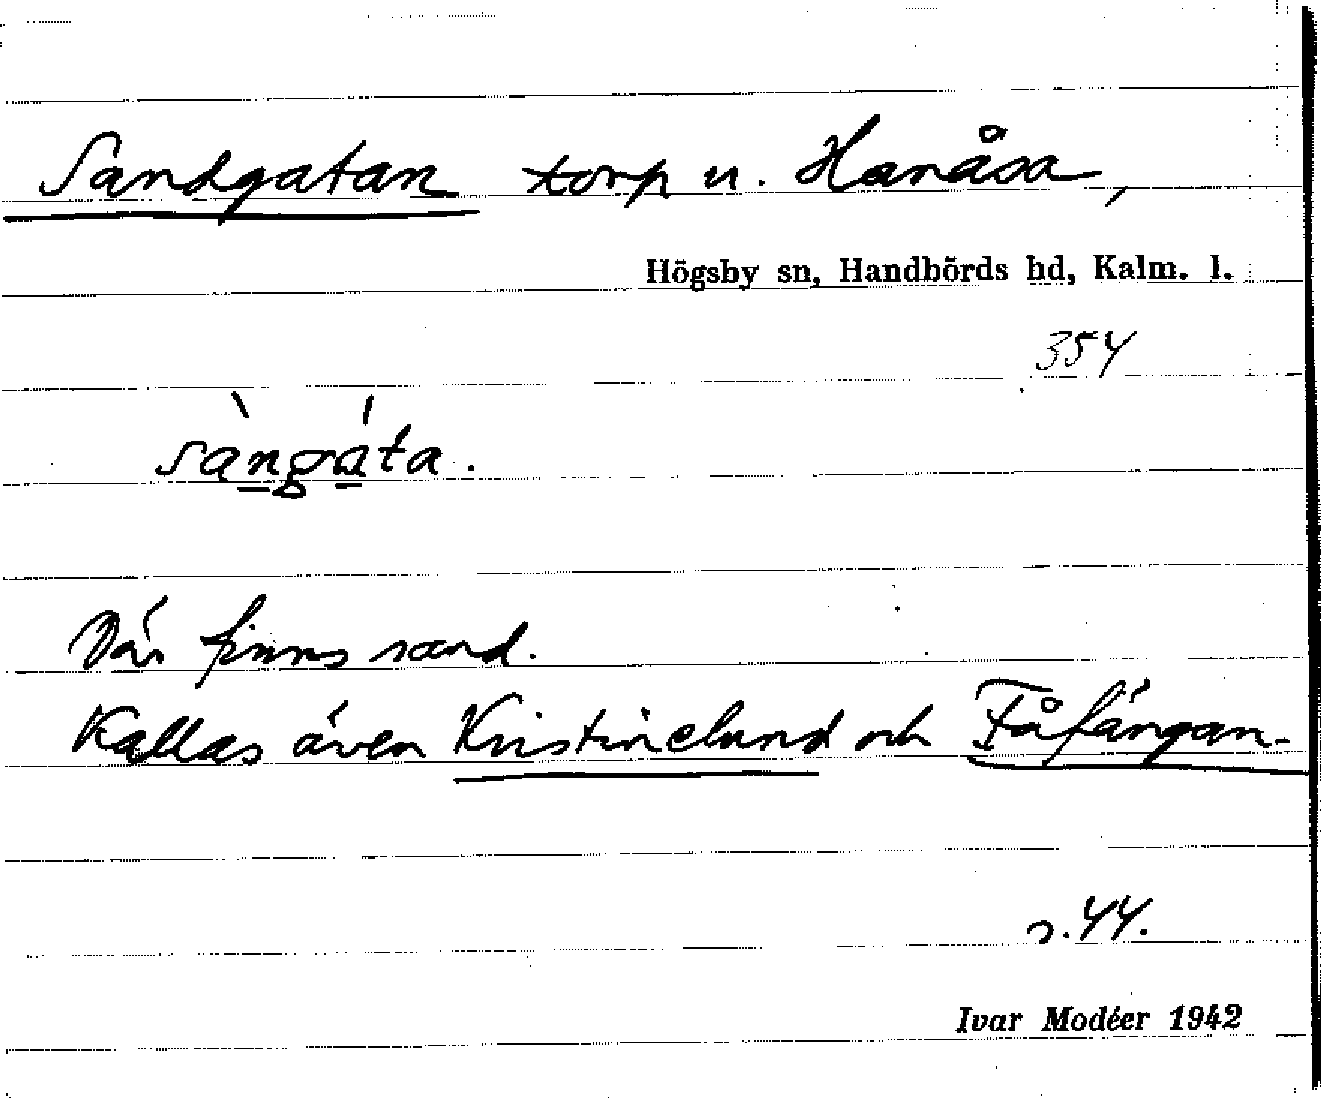 Sandgatan torp u. Hanåsa,
Högsby sn, Handbörds hd, Kalm. l.
354
sàngáta.
Där finns sand.
Kallas även Kristinelund och Fåfängan.
s. 44.
Ivar Modéer 1942